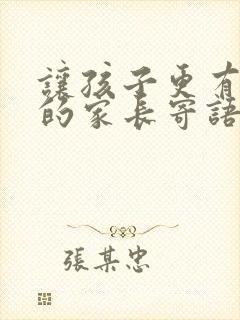 讓孩子更有
的家長寄語
張某忠